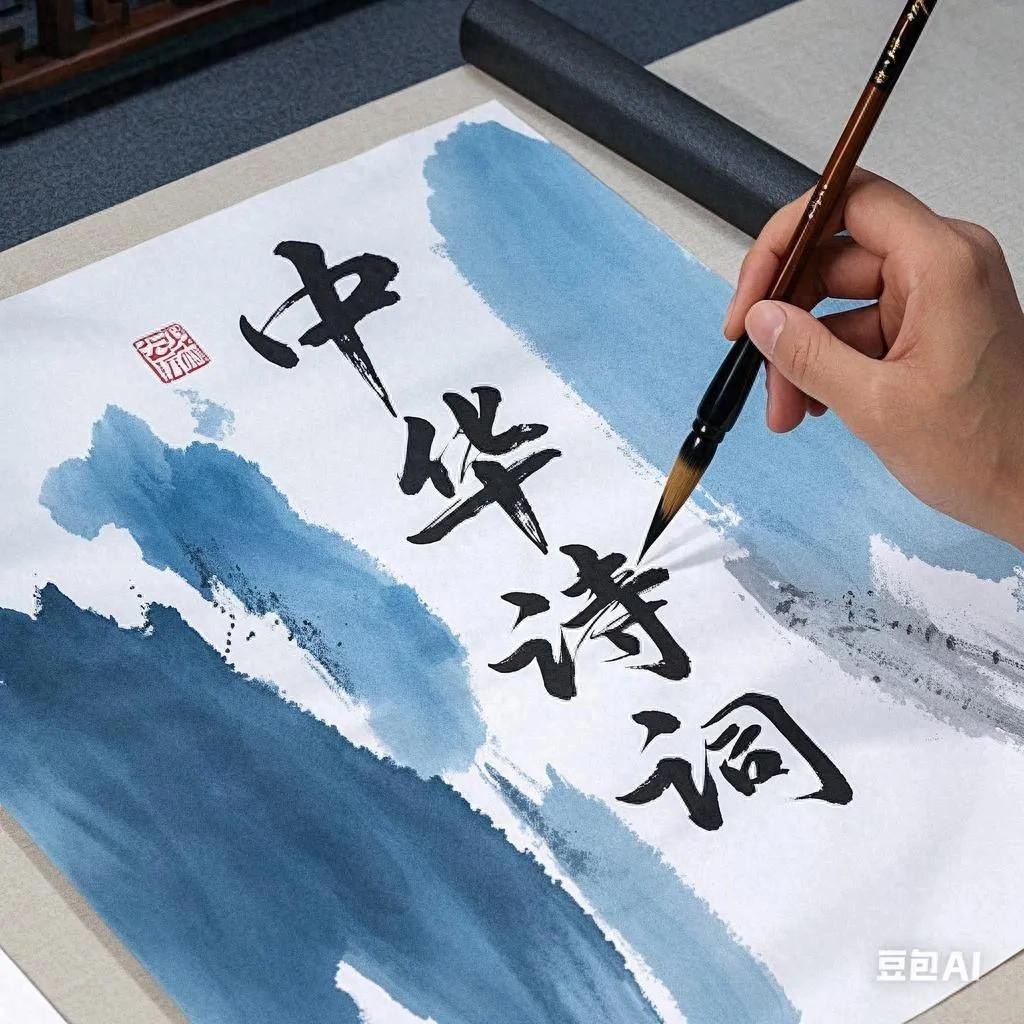 中华诗词
豆包AI